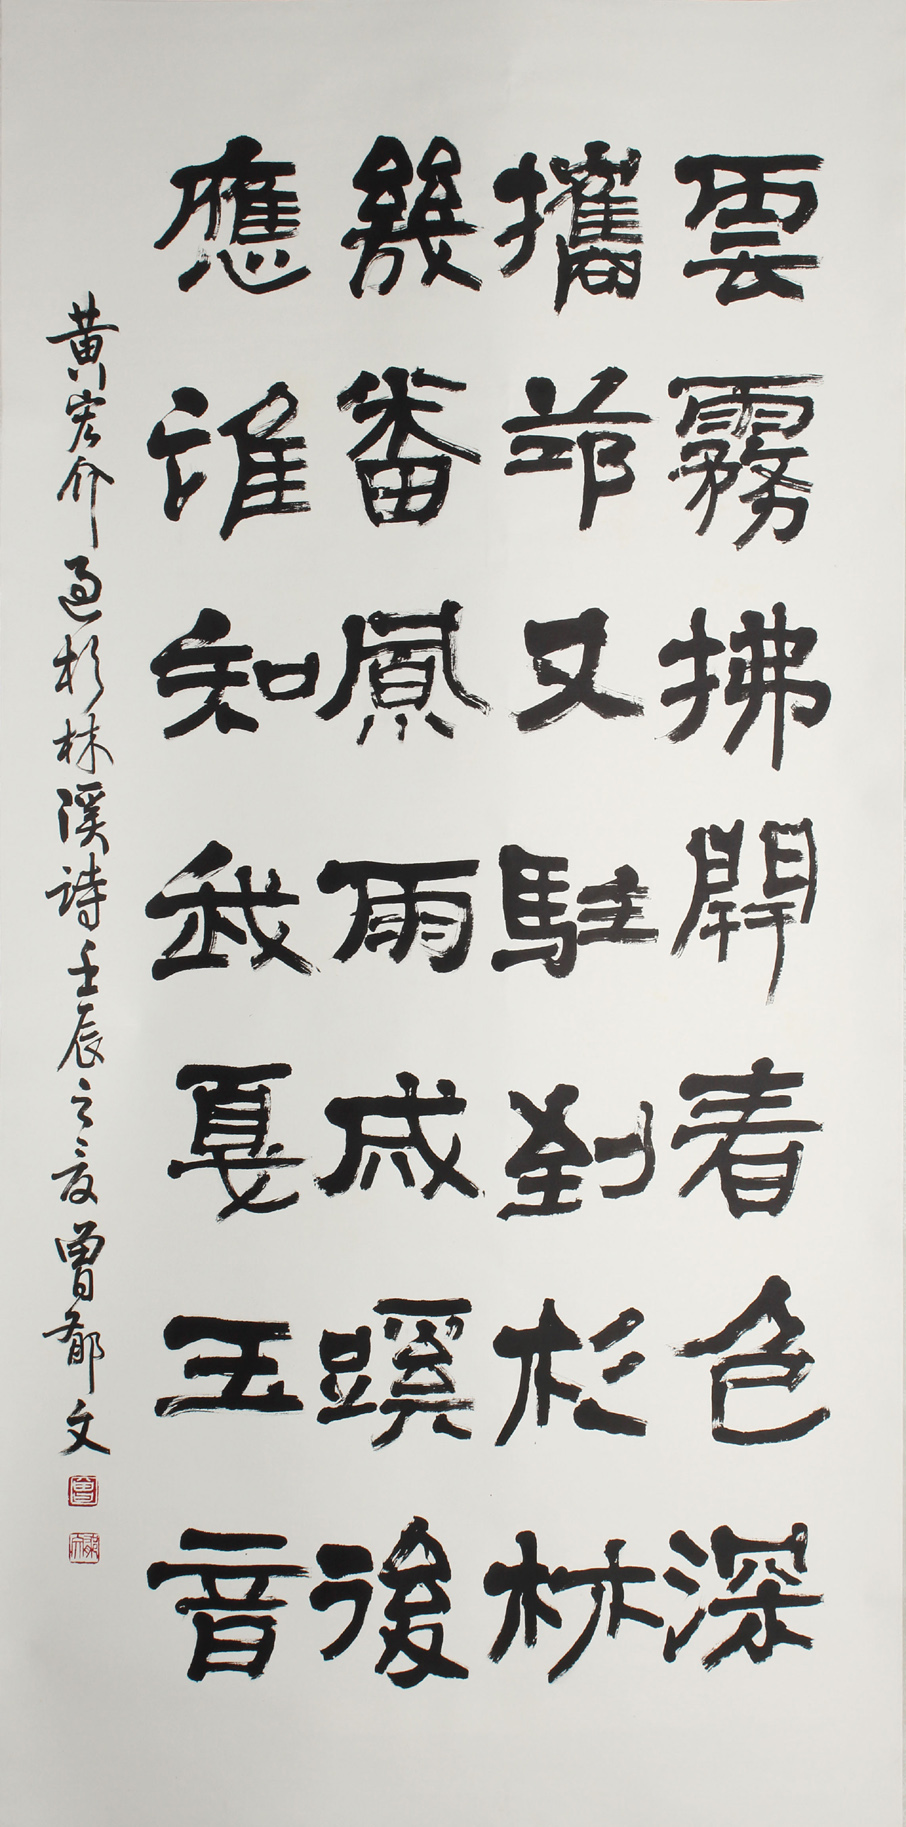 雲霧拂開春色深
攜筇又駐到杉林
幾番風雨成蹊後
應誰知我戛玉音
黃宏介過杉林溪詩壬辰之夏曾郁文